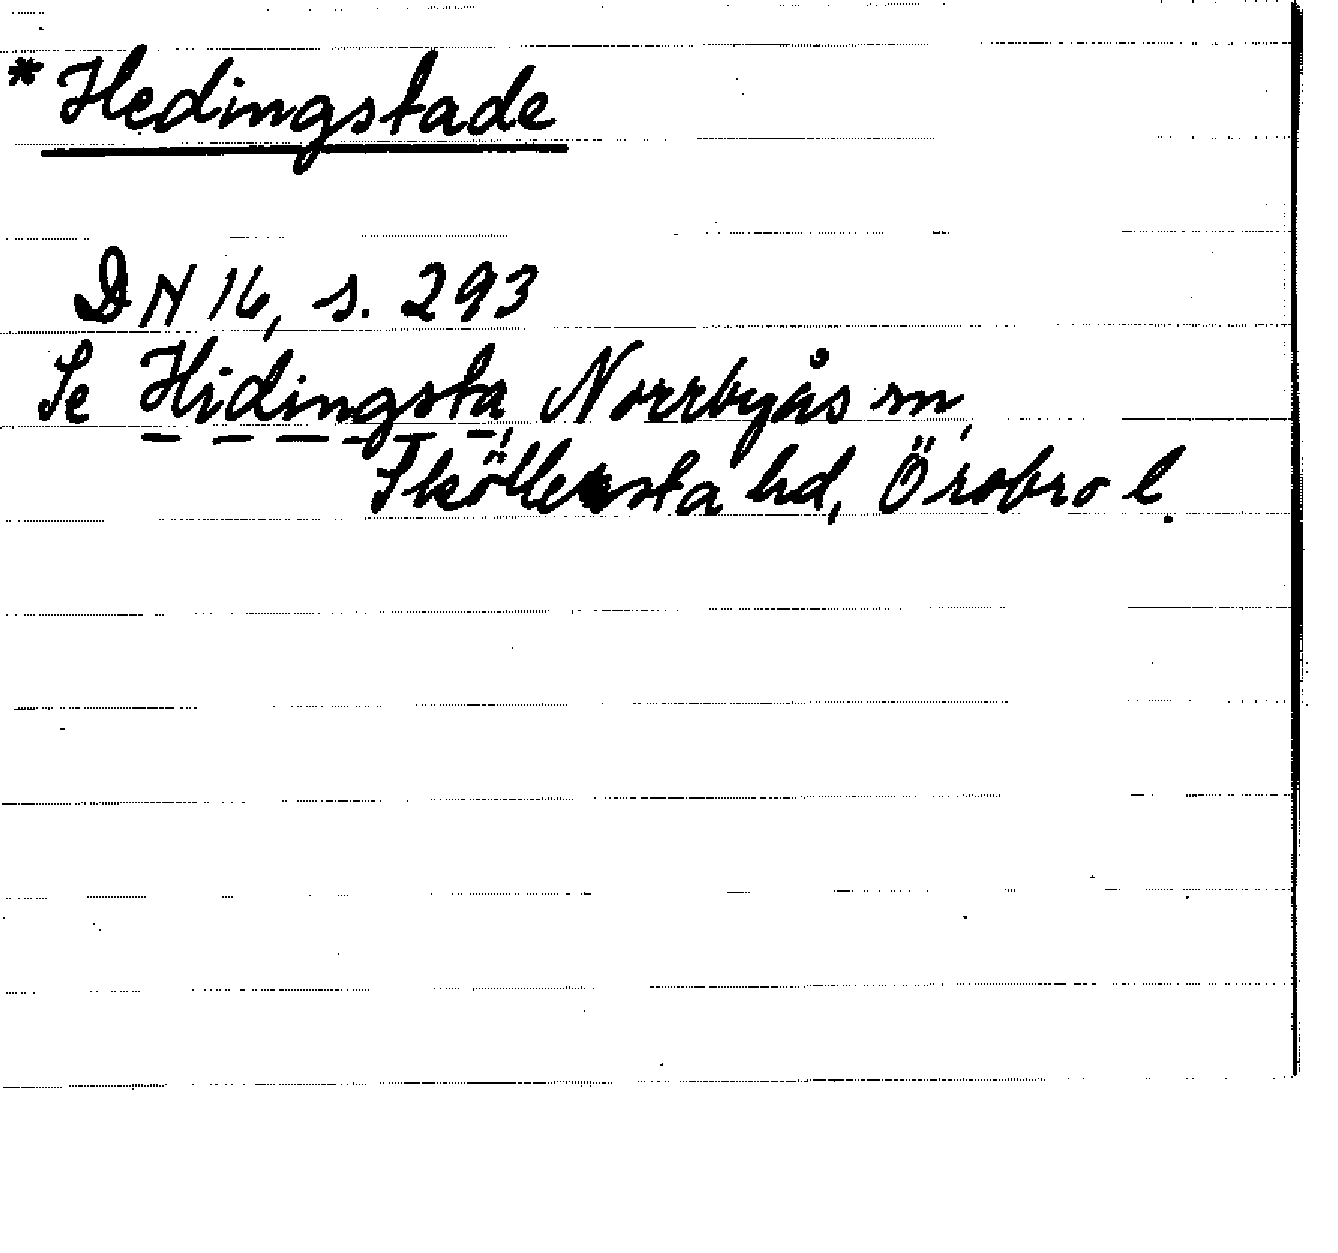 * Hedingstade
DN 16, s. 293
Se Hidingsta, Norrbyås sn,
Sköllersta hd, Örebro l.